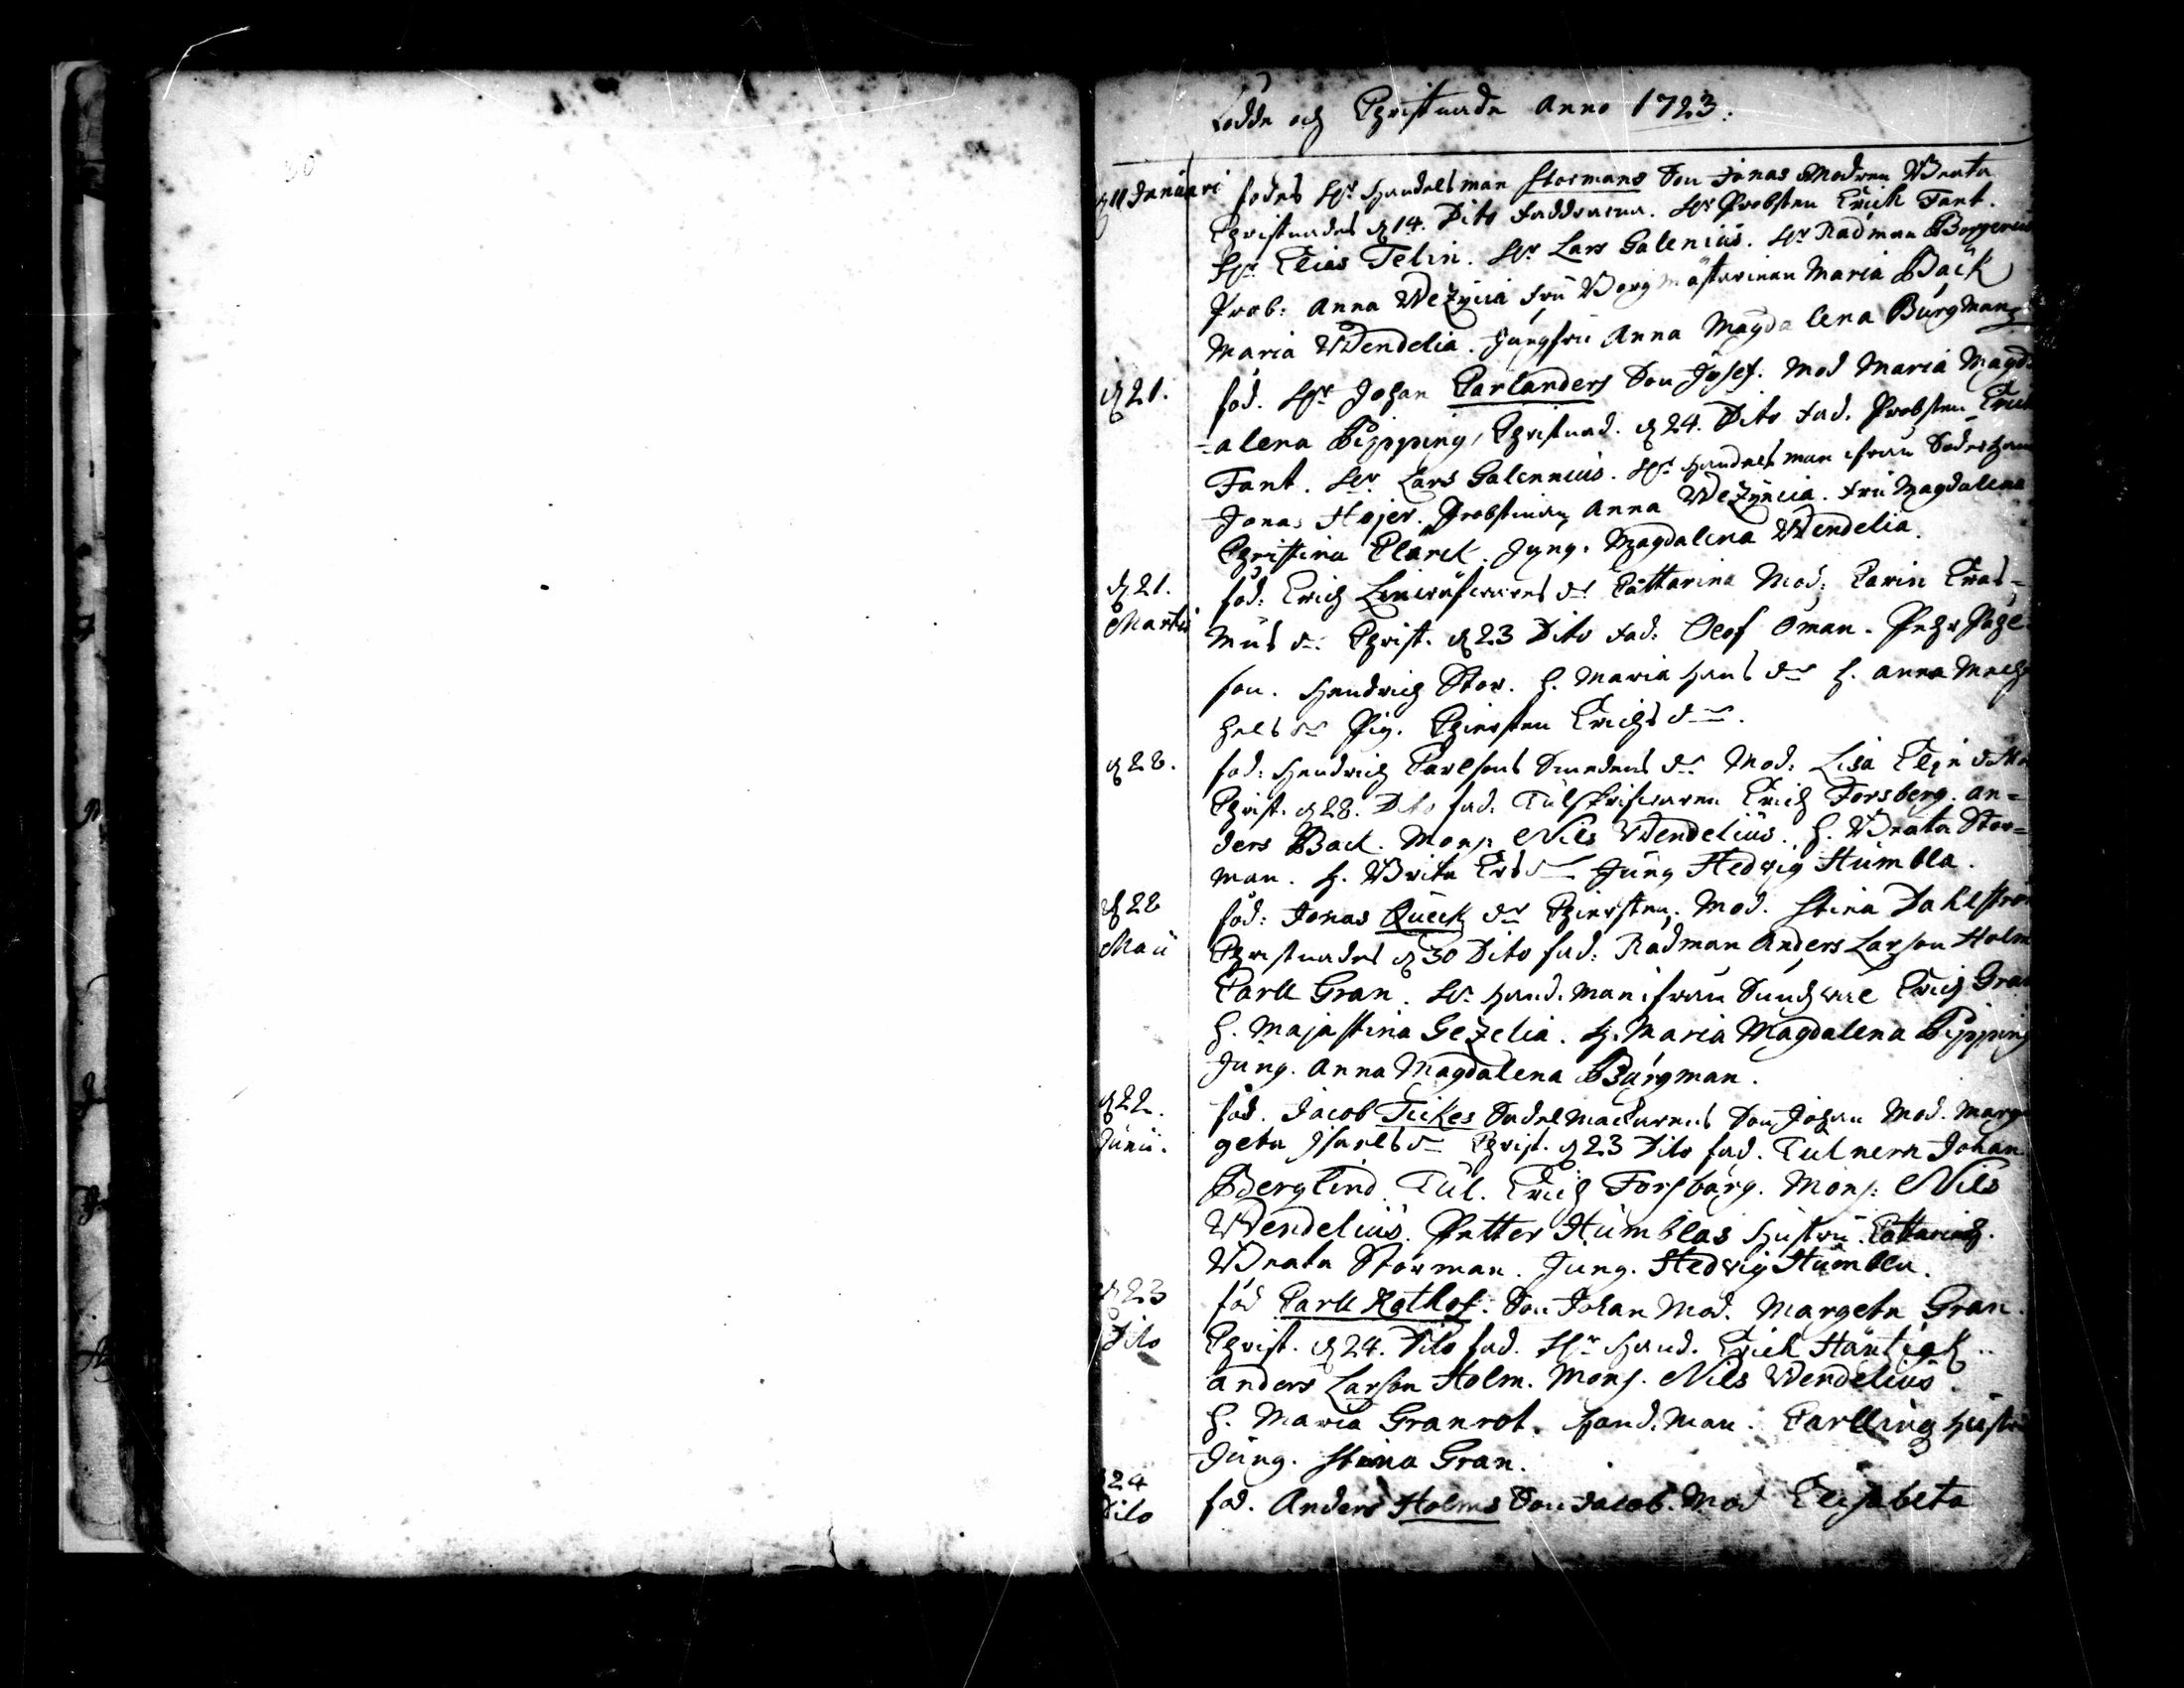 Födde och Christnade Anno 1723.
d 11 Januari föddes Hr Handelsman Stormans Son Jonas Modren Beata
Christnades d 14. Dito Faddrarna. Hr Probsten Erick Fant.
Hr Elias Telin. Hr Lars Galenius. Hr Rådman
Prob: Anna Wezynia Fru Borgmästarinnan Maria Bäck
Maria Wendelia. Jungfru Anna Magdalena Burgman
d 21. föd. Hr Johan Carlanders Son Josef. Mod Maria Magd
=alena Bipping, Christnad. d 24. Dito Fad. Probsten Erick
Fant. Hr Lars Galennius. Hr Handelsman ifrån Söderham
Jonas Höjer. Probstinnan Anna Wezyncia. Fru Magdalena
Christina Clarck. Jung. Magdalena Wendelia.
d 21. föd: Erich dr Cattarina Mod: Carin Eras=
Martii mus dr Christ. d 23 Dito Fad: Olof Öman. Pehr Påhl
son. Hendrich Stor. H. Maria Hans dr H. Anna Mich
hels dr Pig. Chiersten Erichs dr.
d 28. föd: Hendrich Carlsons Smedens dr Mod. Lisa
Christ. d 28. Dito fad. Tulskrifwaren Erich Forsberg. An=
ders Back. Mons: Nils Wendelius. H. Beata Stor=
man. H. Brita Ers dr Jung Hedvig Humbla.
d 28 föd: Jonas Queck dr Chiersten. Mod. Stina Dahlström
Maii Christnades d 30 Dito fad: Rådman Anders Larson Holm
Carll Gran. Hr Hand. man ifrån Sundswal Erich Gran
H. Majastina Gezelia. H. Maria Magdalena Bipping
Jung. Anna Magdalena Burgman.
d 22. föd. Jacob Tickes Sadelmackarens Son Johan Mod. Marg
Junii. geta Isaels dr Christ. d 23 Dito fad. Tulnern Johan
Berglind. Tul. Erich Forsbärg. Mons: Nils
Wendelius. Petter Humblas Hustru. Cattarina.
Beata Storman. Jung. Hedvig Humbla.
d 23 föd Carll Rothof. Son Johan Mod. Margeta Gran.
Dito Christ. d 24. Dito fad. Hr Hand. Erick
Anders Larson Holm. Mons. Nils Wendelius.
H. Maria Granrot. Hand. Man. Carlling Hustru
Jung. Stina Gran.
24 föd. Anders Holms Son Jacob. Mod Elisabeta
Dito